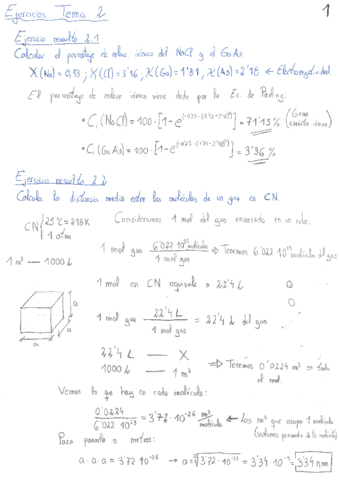 Ejercicios Tema 2
1
Ejercicio resuelto 2.1
Calcular el porcentaje de enlace iónico del NaCl y el GaAs.
X(Na)=0,93; X(Cl)=3'16; X(Ga)=1'81; X(As)=2'18 ← Electronegatividad
El porcentaje de enlace iónico viene dado por la Ec. de Pauling:
• Ci(NaCl)=100·[1-e^(-0'25·(0'93-3'16)²)]=71'15% (Gran carácter iónico)
• Ci(GaAs)=100·[1-e^(-0'25·(1'81-2'18)²)]=3'36%
Ejercicio resuelto 2.2
Calcula la distancia media entre las moléculas de un gas en CN
CN 25°C=298K
1 atm
Consideramos 1 mol del gas encerrado en un cubo.
1 m³ — 1000L
1 mol gas 6'022·10²³ moléculas / 1 mol gas ⇒ Tenemos 6'022·10²³ moléculas del gas
1 mol en CN equivale a 22'4L
1 mol gas 22'4L / 1 mol gas = 22'4L del gas
a
a
a
22'4L — X
1000L — 1 m³
⇒ Tenemos 0'0224 m³ en todo el mol.
Vemos lo que hay en cada molécula:
0'0224 / 6'022·10²³ = 3'72·10⁻²⁶ m³/molécula ← Los m³ que ocupa 1 molécula
(volumen promedio de la molécula)
Para pasarlo a metros:
a·a·a=3'72·10⁻²⁶ → a=∛3'72·10⁻²⁶=3'34·10⁻⁹=3'34nm